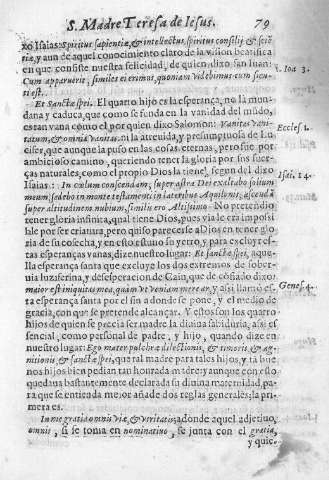 S. Madre Teresa de Iesus. 79
xo Isaias: Spiritus sapientiæ, & intellectus, spiritus consilij & sciē
tiæ, y aun de aquel conocimiento claro de la vision beatifica
en que consiste nuestra felicidad, de quien dixo san Iuan:
Cum apparuerit, similes ei erimus, quoniam videbimus eum sicu-
ti est.
1. Ioā 3.
Et Sanctæ spei. El quarto hijo es la esperança, no la mun-
dana y caduca, que como se funda en la vanidad del mūdo,
es tan vana como el por quien dixo Salomon: Vanitas vani-
tatum, & omnia vanitas: ni la atreuida, y presumptuosa de Lu-
cifer, que aunque la puso en las cosas eternas, pero fue por
ambicioso camino, queriendo tener la gloria por sus fuer-
ças naturales, como el propio Dios la tiene, segun del dixo
Isaias: In cœlum conscendam, super astra Dei exaltabo solium
meum, sedebo in monte testamenti in lateribus Aquilonis, ascendā
super altitudinem nubium, similis ero Altissimo. No pretendio
tener gloria infinita, qual tiene Dios, pues via le era imposi
ble por ser criatura, pero quiso parecerse a Dios en tener glo
ria de su cosecha, y en esto estuuo su yerro, y para excluyr es-
tas esperanças vanas, dize nuestro lugar: Et sanctæ spei, aque-
lla esperança santa que excluye los dos extremos de sober-
uia luzaferina, y desesperacion de Cain, que de cōfiado dixo:
maior est iniquitas mea, quàm vt veniam merear, y assi llamó es-
ta esperança santa por el fin a donde se pone, y el medio de
gracia, con que se pretende alcançar. Y estos son los quatro
hijos de quien se precia ser madre la diuina sabiduria, assi es-
sencial, como personal de padre, y hijo, quando dize en
nuestro lugar: Ego mater pulchræ dilectionis, & timoris, & ag-
nitionis, & sanctæ spei, que tal madre para tales hijos, y tā bue
nos hijos bien pedian tan honrada madre: y aunque con esto
quedaua bastantemente declarada su diuina maternidad, pa-
ra que se entienda mejor añade dos reglas generales; la pri-
mera es.
Eccles 1.
Isai. 14.
Genes 4.
In me gratia omnis viæ, & veritatis: adonde aquel adjetiuo,
omnis, si se toma en nominatiuo, se junta con el gratia,
y quie-